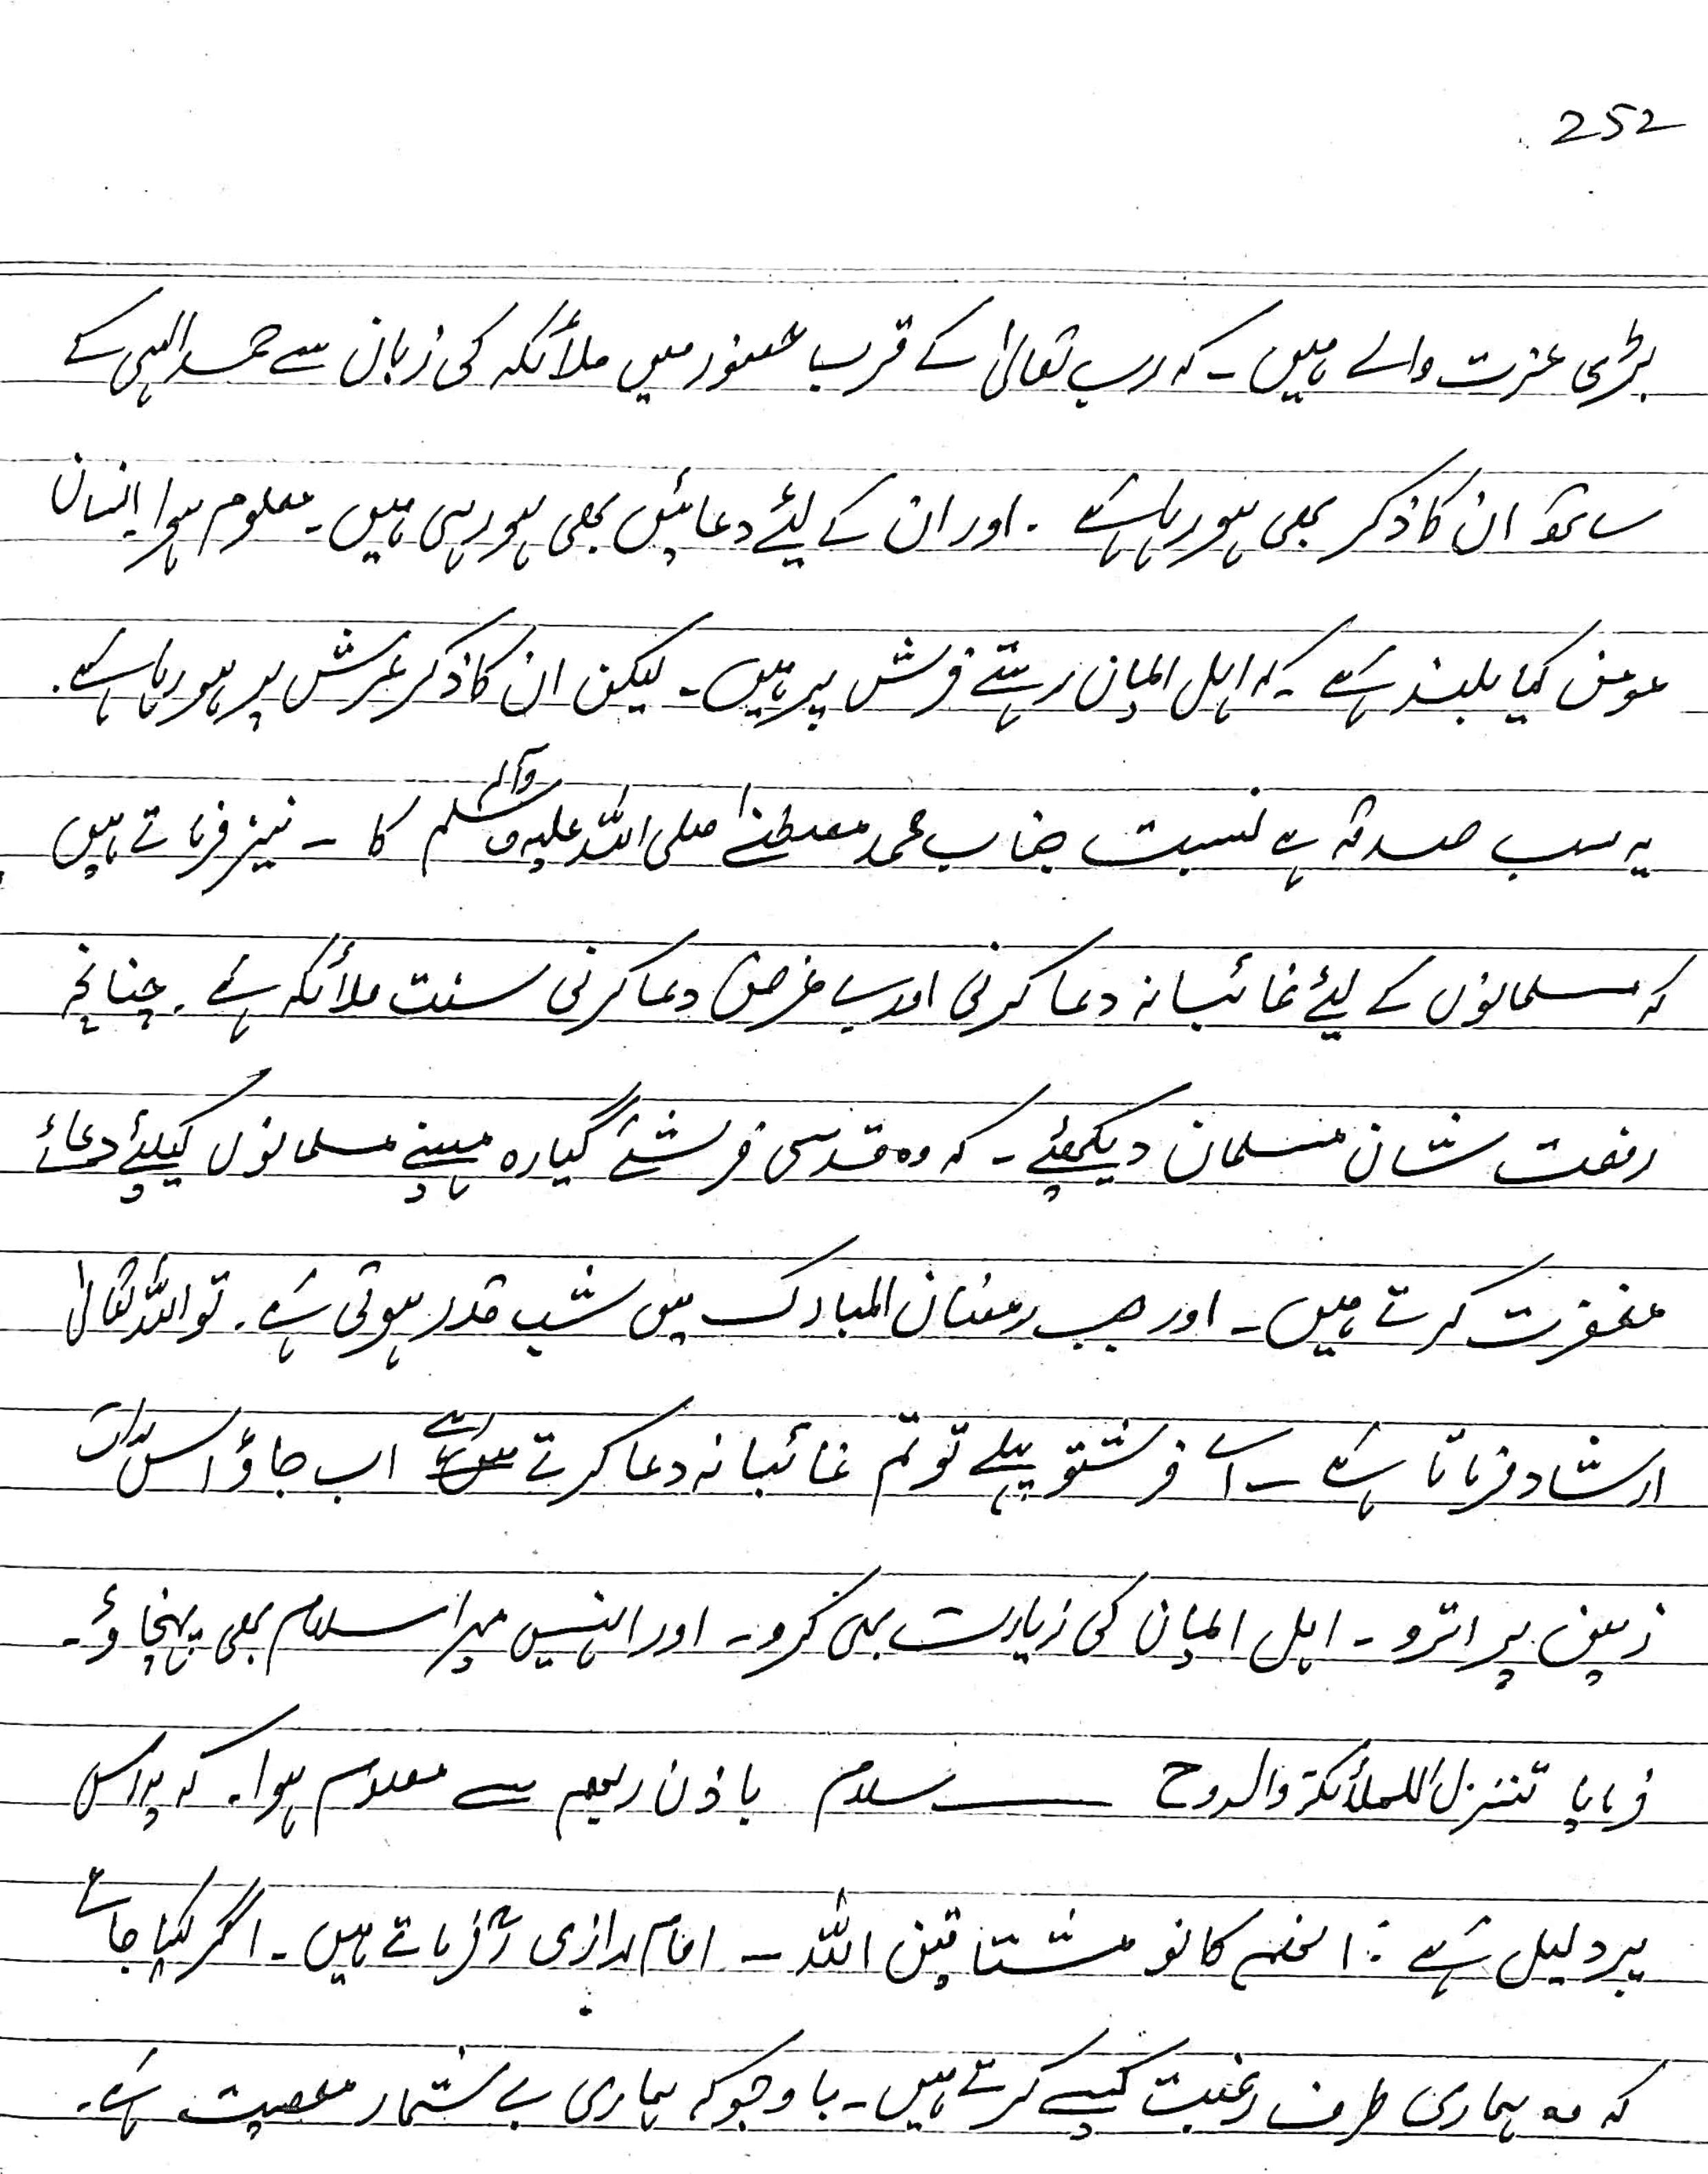 252
بڑی عزت والے ہیں۔ کہ رب تعالیٰ کے قرب حضور میں ملائکہ کی زبان سے حمد الہی کے
ساتھ ان کا ذکر بھی ہو رہا ہے۔ اور ان کے لیئے دعائیں بھی ہو رہی ہیں۔ معلوم ہوا انسان
مومن کیا بلند ہے۔ کہ اہل ایمان رہتے فرش پر ہیں۔ لیکن ان کا ذکر عرش پر ہو رہا ہے۔
یہ سب صدقہ ہے نسبت جناب محمد مصطفےٰ صلی اللہ علیہ وآلہ وسلم کا ۔ نیز فرماتے ہیں
کہ مسلمانوں کے لیئے غائبانہ دعا کرنی اور بے غرض دعا کرنی سنت ملائکہ ہے۔ چنانچہ
رفعت شان مسلمان دیکھیئے۔ کہ وہ قدسی فرشتے گیارہ مہینے مسلمانوں کیلیئے دعائے
مغفرت کرتے ہیں۔ اور جب رمضان المبارک میں شب قدر ہوتی ہے۔ تو اللہ تعالیٰ
ارشاد فرماتا ہے۔ اے فرشتو پہلے تو تم غائبانہ دعا کرتے رہے اب جاؤ اس رات
زمین پر اترو۔ اہل ایمان کی زیارت بھی کرو۔ اور انہیں میرا سلام بھی پہنچاؤ۔
فرمایا تنزل الملائکۃ والروح ـــــ سلام باذن ربھم سے معلوم ہوا۔ کہ یہ اس
پر دلیل ہے: انھم کانو مشتاقین اللہ ۔ امام رازی رح فرماتے ہیں۔ اگر کہا جائے
کہ وہ ہماری طرف رغبت کیسے کرتے ہیں۔ باوجوکہ ہماری بے شمار معصیت ہے۔